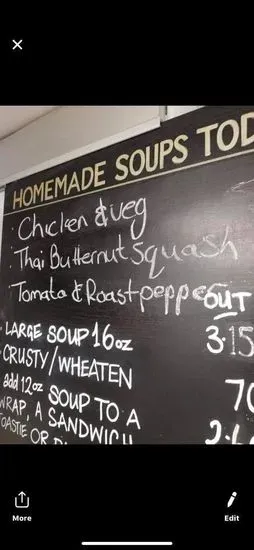 HOMEMADE SOUPS TOD
Chicken & veg
Thai Butternut Squash
Tomato & Roast peppe
OUT
LARGE SOUP 16oz 3.15
CRUSTY/WHEATEN
add 12oz SOUP TO A 70
WRAP, A SANDWICH
TOASTIE OR
More
Edit